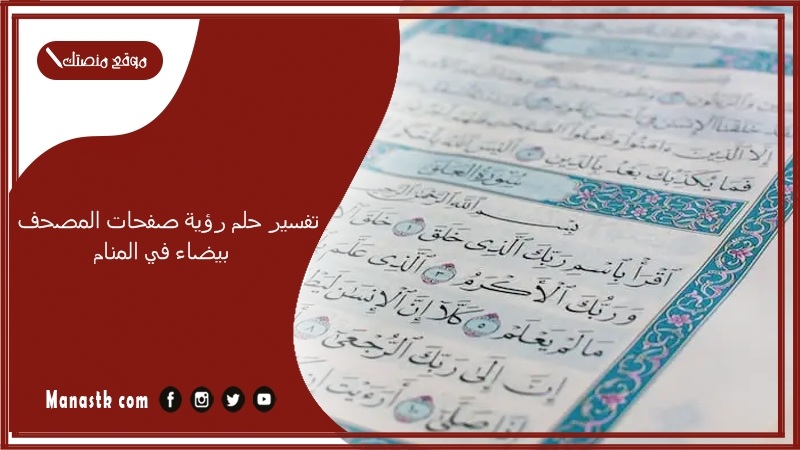 موقع منصتك
تفسير حلم رؤية صفحات المصحف
بيضاء في المنام
Manastk com
إلا الذين ءامنوا وعملوا الصالحات
فما يكذبك بعد بالدين ٧ أليس الله
سورة العلق
بسم الله الرحمن الرحيم
ٱقرأ بٱسم ربك ٱلذى خلق ١ خلق
وربك ٱلأكرم ٣ ٱلذى علم
ما لم يعلم ٥ كلا إن ٱلإنسن
إن إلى ربك ٱلرجعى ٨
إذا صلى ١٠ أرءيت إن